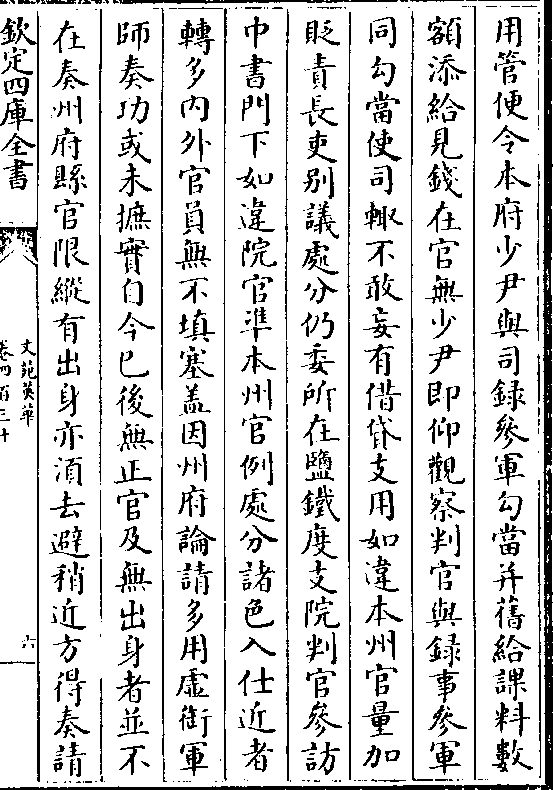 用管使令本府少尹與司錄參軍勾當并舊給課料數
額添給見錢在官無少尹即仰觀察判官與錄事參軍
同勾當使司輙不敢妄有借貸支用如違本州官量加
貶責長吏别議處分仍委所在鹽鐵度支院判官參訪
巾書門下如違院官準本州官例處分諸色入仕近者
轉多内外官員無不填塞盖因州府論請多用虚銜軍
師奏功或未摭實自今已後無正官及無出身者並不
在奏州府縣官限縱有出身亦湏去避稍近方得奏請
欽定四庫全書
文苑英華
卷四百三十
六